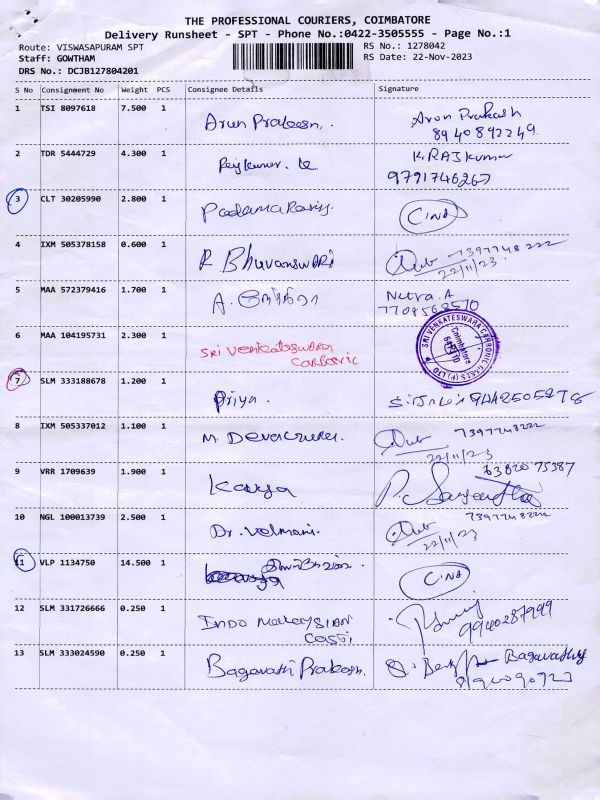 THE PROFESSIONAL COURIERS, COIMBATORE
Delivery Runsheet - SPT - Phone No.:0422-3505555 - Page No.:1
Route: VISWASAPURAM SPT
RS No.: 1278042
Staff: GOWTHAM
RS Date: 22-Nov-2023
DRS No.: DCJB127804201
S No Consignment No Weight PCS Consignee Details Signature
1 TSI 8097618 7.500 1 Arun Prakash
8940892249
2 TDR 5444729 4.300 1 Rejkumar. K K.RAJKumar
9791746267
3 CLT 30205990 2.800 1
4 IXM 505378158 0.600 1 R Bhuvanswari 7397748222
22/11/23.
5 MAA 572379416 1.700 1 A. Netra.A
7708568570
6 MAA 104195731 2.300 1 SRI Venkateswara
Carbonic
SRI VENKATESWARA CARBONIC GASES (P) LTD
Coimbatore
7 SLM 333188678 1.200 1 Priya.
8 IXM 505337012 1.100 1 M. 7397748222
22/11/23
9 VRR 1709639 1.900 1 Kavya 75387
10 NGL 100013739 2.500 1 Dr. Velmani. 7397748222
22/11/23
11 VLP 1134750 14.500 1
12 SLM 331726666 0.250 1 INDO MALAYSIAN
9940287999
13 SLM 333024590 0.250 1 Bagavathi Prakash.